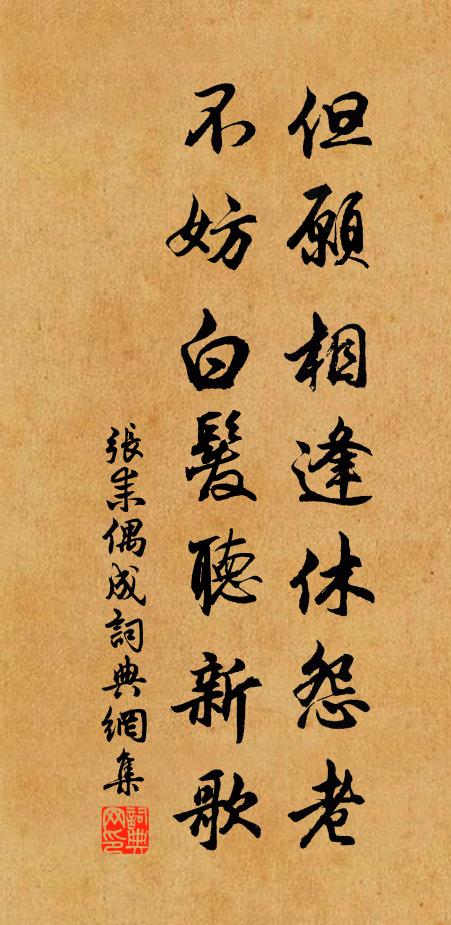 但願相逢休怨老
不妨白髮聽新歌
張耒偶成詞典網集
詞典网印